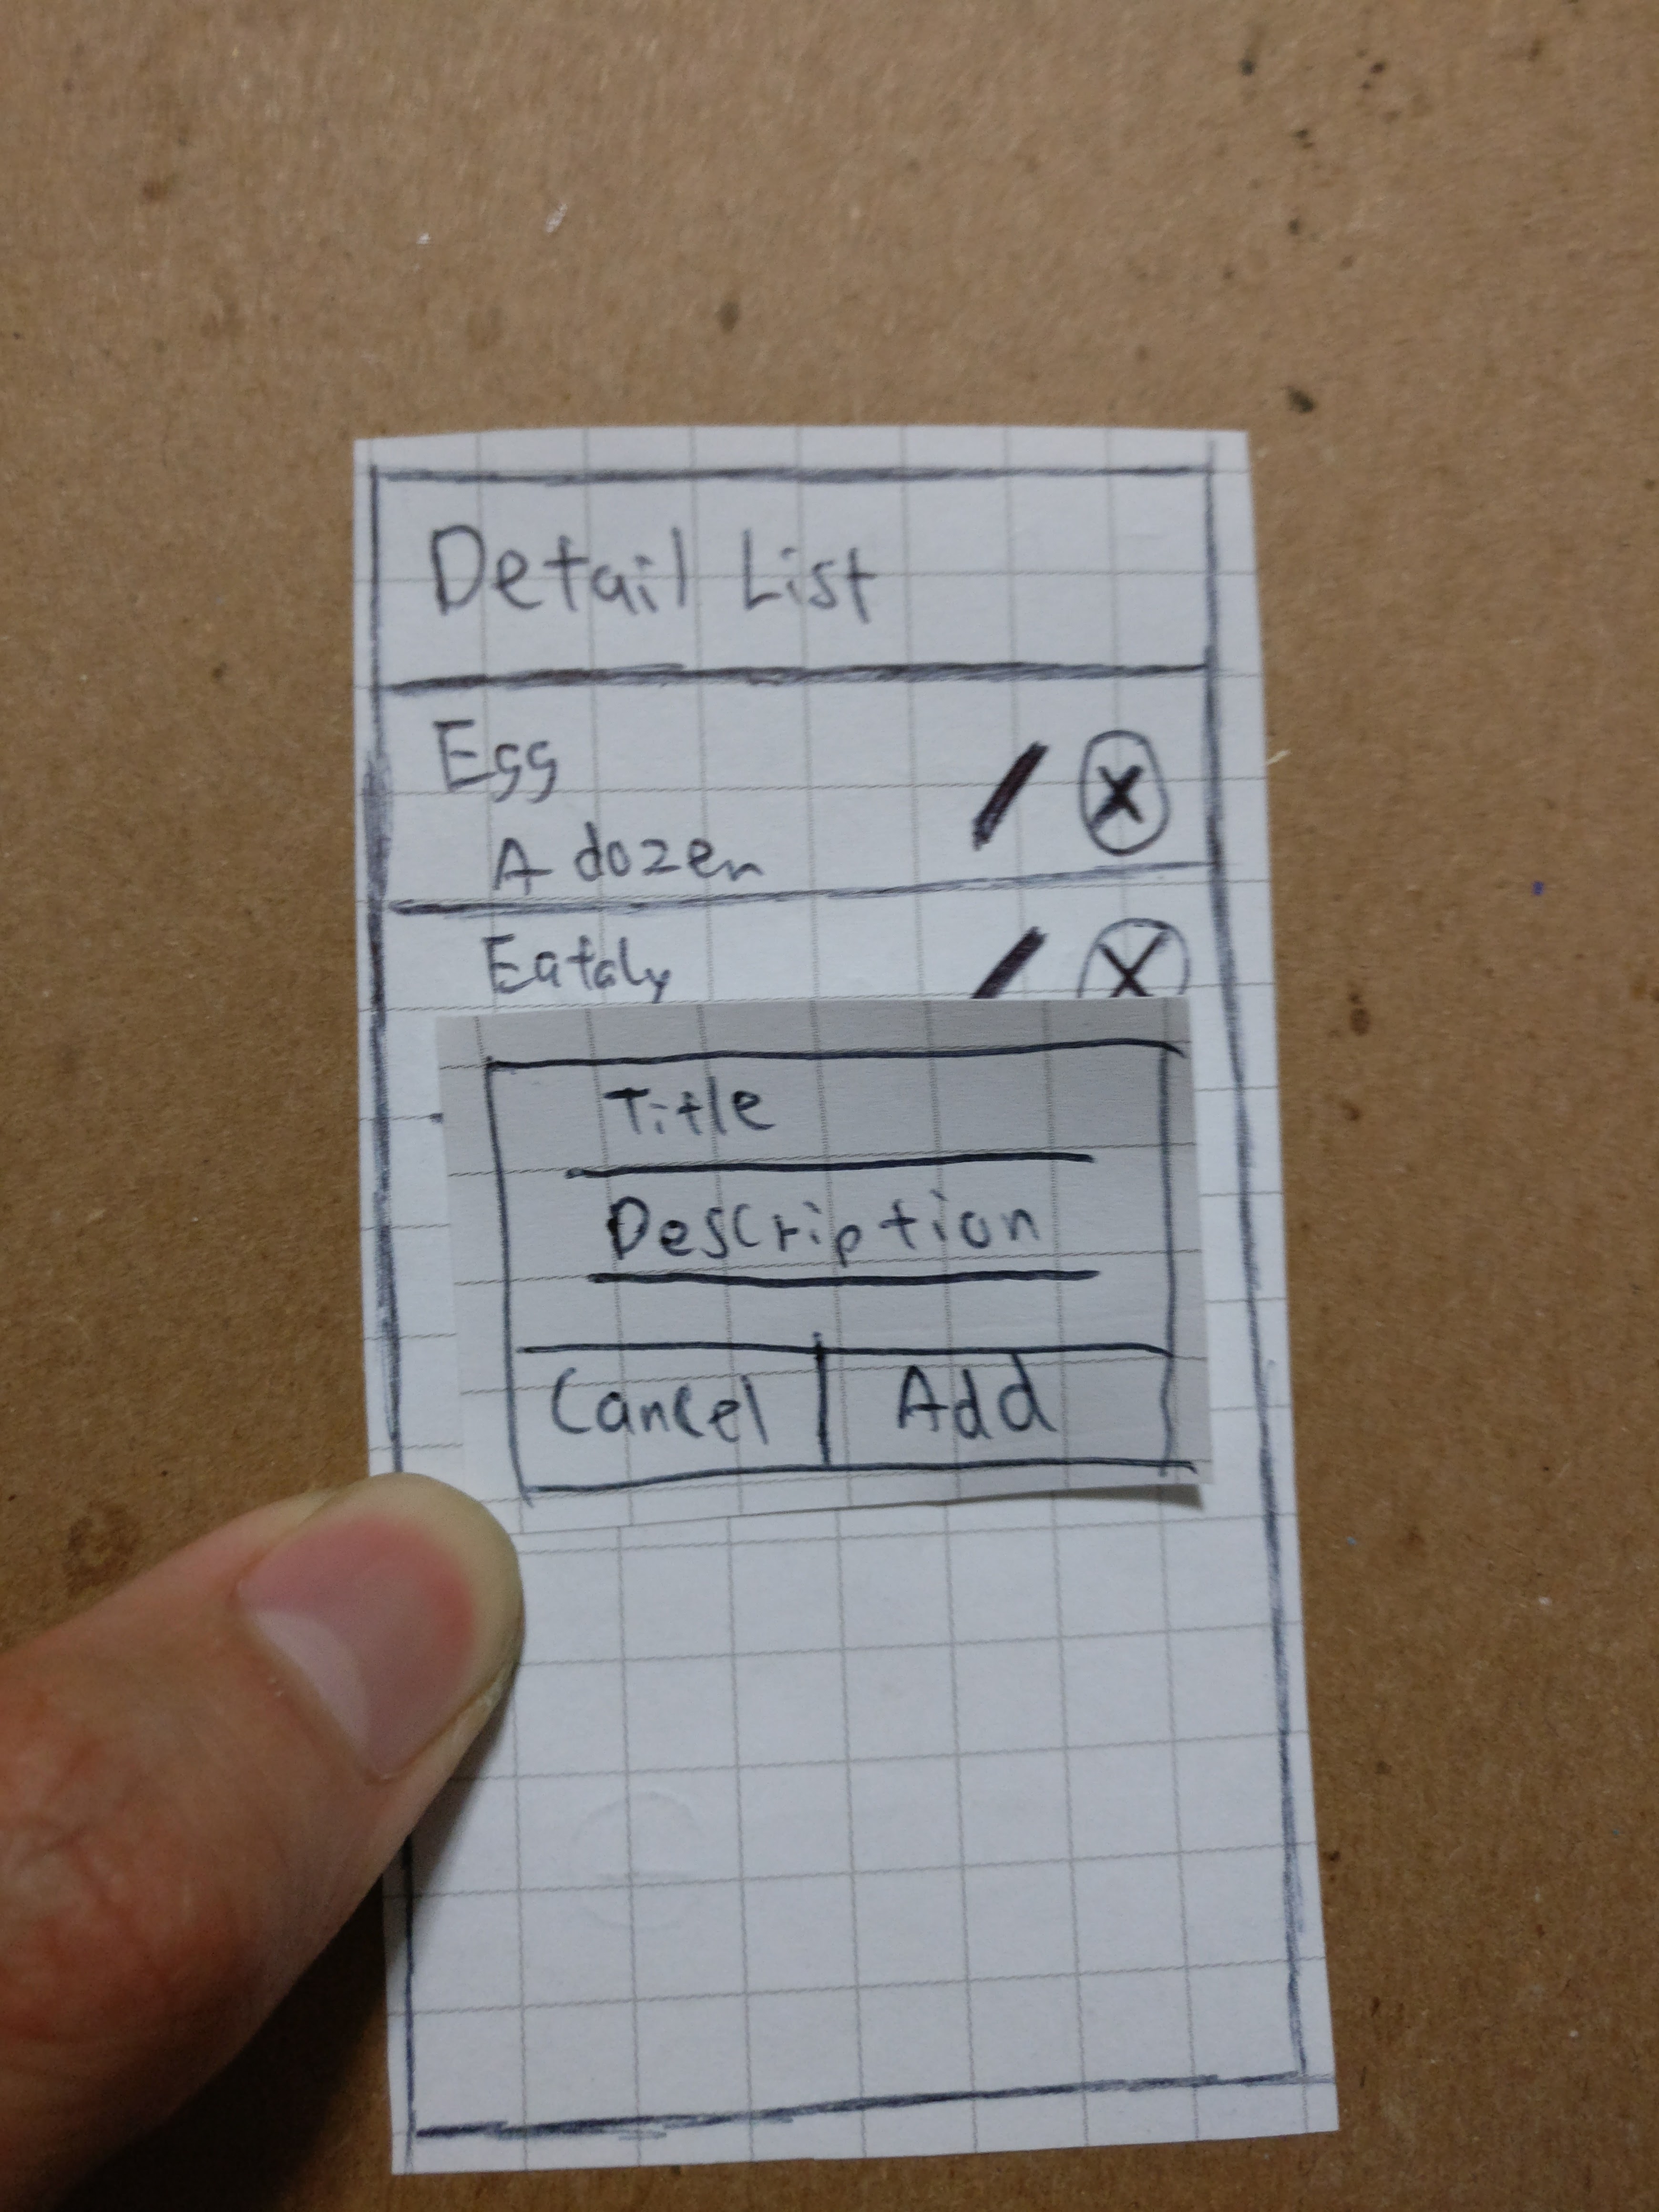 Detail List
Egg
A dozen
Eataly
Title
Description
Cancel
Add